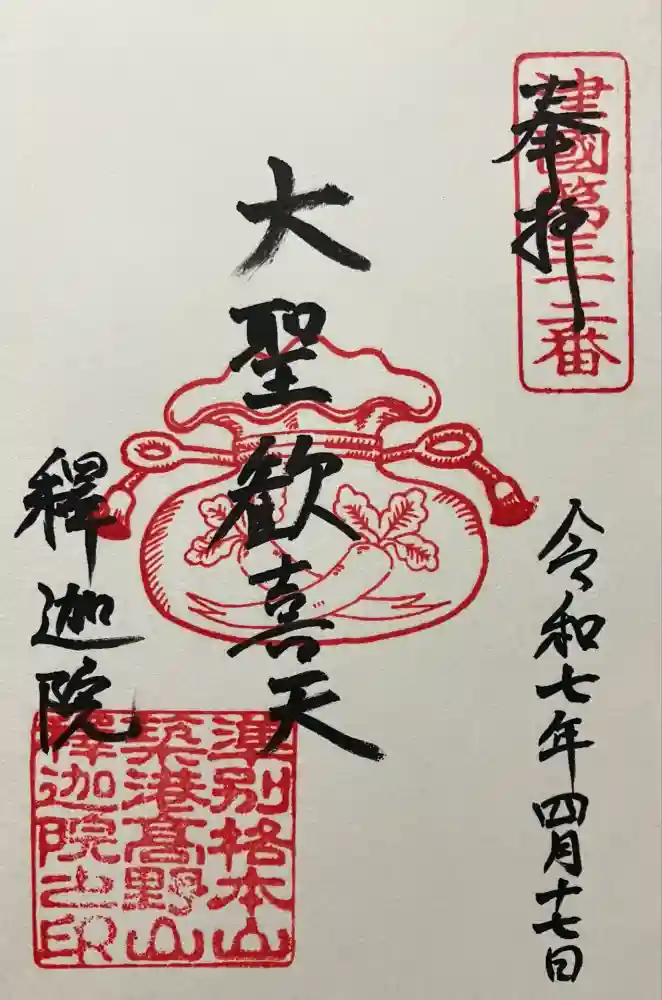 奉拝
建國第三十二番
令和七年四月十七日
大聖歓喜天
釋迦院
準別格本山
築港高野山
釋迦院之印